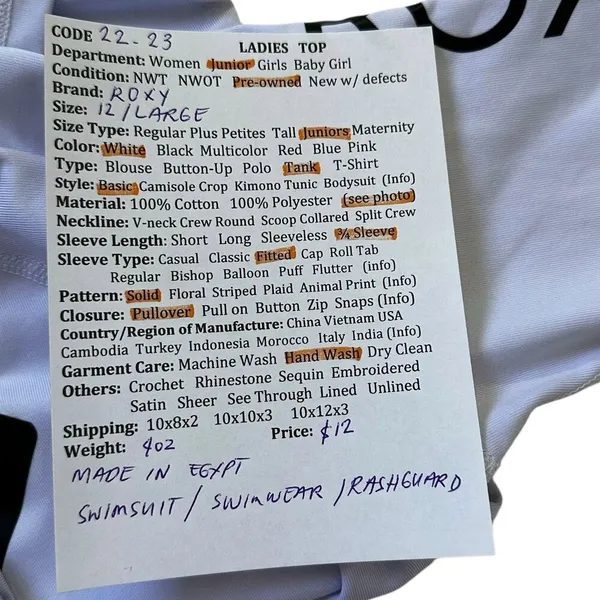 ROX
CODE 22-23 LADIES TOP
Department: Women Junior Girls Baby Girl
Condition: NWT NWOT Pre-owned New w/ defects
Brand: ROXY
Size: 12/LARGE
Size Type: Regular Plus Petites Tall Juniors Maternity
Color: White Black Multicolor Red Blue Pink
Type: Blouse Button-Up Polo Tank T-Shirt
Style: Basic Camisole Crop Kimono Tunic Bodysuit (Info)
Material: 100% Cotton 100% Polyester (see photo)
Neckline: V-neck Crew Round Scoop Collared Split Crew
Sleeve Length: Short Long Sleeveless ¾ Sleeve
Sleeve Type: Casual Classic Fitted Cap Roll Tab
Regular Bishop Balloon Puff Flutter (info)
Pattern: Solid Floral Striped Plaid Animal Print (Info)
Closure: Pullover Pull on Button Zip Snaps (Info)
Country/Region of Manufacture: China Vietnam USA
Cambodia Turkey Indonesia Morocco Italy India (Info)
Garment Care: Machine Wash Hand Wash Dry Clean
Others: Crochet Rhinestone Sequin Embroidered
Satin Sheer See Through Lined Unlined
Shipping: 10x8x2 10x10x3 10x12x3
Weight: 4oz Price: $12
MADE IN EGYPT
SWIMSUIT / SWIMWEAR / RASHGUARD